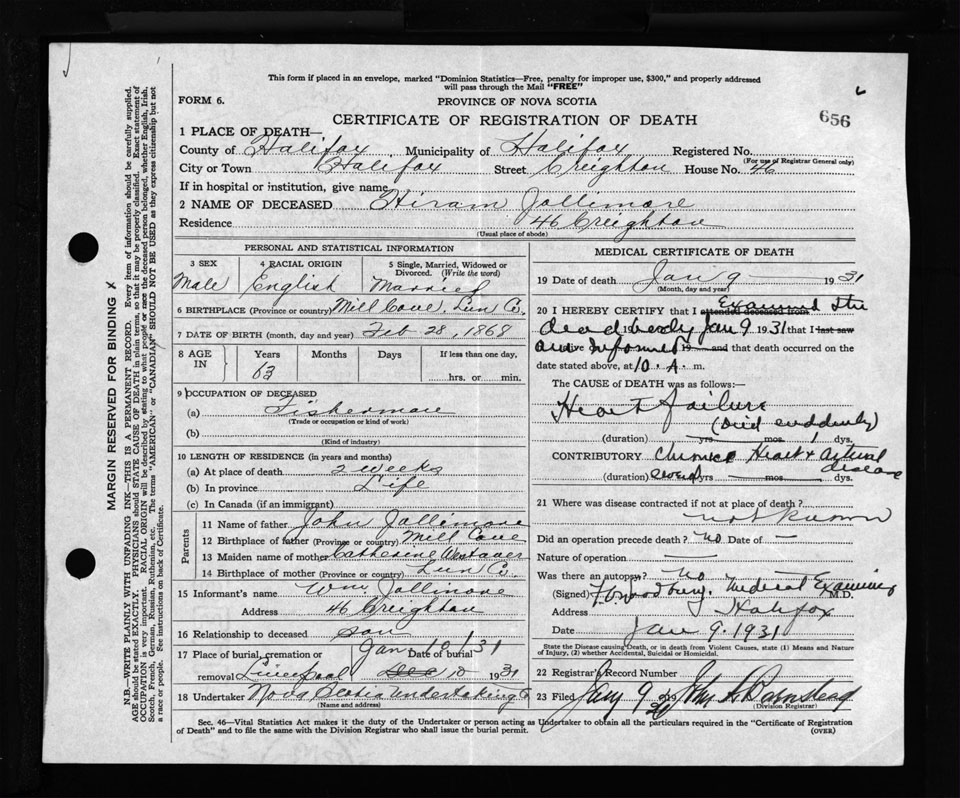 This form if placed in an envelope, marked "Dominion Statistics—Free, penalty for improper use, $300," and properly addressed
will pass through the Mail "FREE"
FORM 6.
PROVINCE OF NOVA SCOTIA
CERTIFICATE OF REGISTRATION OF DEATH
656
1 PLACE OF DEATH—
County of Halifax Municipality of Halifax Registered No.
(For use of Registrar General only)
City or Town Halifax Street Creighton House No. 46
If in hospital or institution, give name
2 NAME OF DECEASED Hiram Jollimore
Residence 46 Creighton
(Usual place of abode)
PERSONAL AND STATISTICAL INFORMATION
3 SEX
Male
4 RACIAL ORIGIN
English
5 Single, Married, Widowed or
Divorced. (Write the word)
Married
6 BIRTHPLACE (Province or country) Mill Cove, Lun Co.
7 DATE OF BIRTH (month, day and year) Feb 28, 1868
8 AGE IN
Years Months Days If less than one day,
63 hrs. or min.
9 OCCUPATION OF DECEASED
(a) Fisherman
(Trade or occupation or kind of work)
(b)
(Kind of industry)
10 LENGTH OF RESIDENCE (in years and months)
(a) At place of death 2 weeks
(b) In province Life
(c) In Canada (if an immigrant)
Parents
11 Name of father John Jollimore
12 Birthplace of father (Province or country) Mill Cove
13 Maiden name of mother Catherine Westaver
14 Birthplace of mother (Province or country) Lun Co.
15 Informant's name Wm Jollimore
Address 46 Creighton
16 Relationship to deceased son
17 Place of burial, cremation or Date of burial
Jan 10/31
removal Liverpool 10 1931
18 Undertaker Nova Scotia Undertaking Co
(Name and address)
MEDICAL CERTIFICATE OF DEATH
19 Date of death Jan 9 1931
(Month, day and year)
20 I HEREBY CERTIFY that I attended deceased from Examined the
dead body Jan 9 1931 that I last saw
alive am informed 19 and that death occurred on the
date stated above, at 10 A. m.
The CAUSE OF DEATH was as follows:
Heart failure
(Died suddenly)
(duration) yrs. mos. dys.
CONTRIBUTORY Chronic Heart & arterial
disease
(duration) yrs. mos. dys.
21 Where was disease contracted if not at place of death?
not known
Did an operation precede death? no Date of —
Nature of operation —
Was there an autopsy? No
(Signed) Medical Examiner M.D.
Address Halifax
Date Jan 9. 1931
State the Disease causing Death, or in death from Violent Causes, state (1) Means and Nature
of Injury, (2) whether Accidental, Suicidal or Homicidal.
22 Registrar's Record Number
23 Filed Jany 9
(Division Registrar)
Sec. 46—Vital Statistics Act makes it the duty of the Undertaker or person acting as Undertaker to obtain all the particulars required in the "Certificate of Registration
of Death" and to file the same with the Division Registrar who shall issue the burial permit.
(OVER)
MARGIN RESERVED FOR BINDING
N.B.—WRITE PLAINLY WITH UNFADING INK—THIS IS A PERMANENT RECORD. Every item of information should be carefully supplied.
AGE should be stated EXACTLY. PHYSICIANS should STATE CAUSE OF DEATH in plain terms, so that it may be properly classified. Exact statement of
OCCUPATION is very important. RACIAL ORIGIN will be described by stating to what people or race the deceased person belonged, whether English, Irish,
Scotch, French, German, Russian, Ruthenian, etc. The terms "AMERICAN" or "CANADIAN" SHOULD NOT BE USED as they express citizenship but not
a race or people. See instructions on back of Certificate.